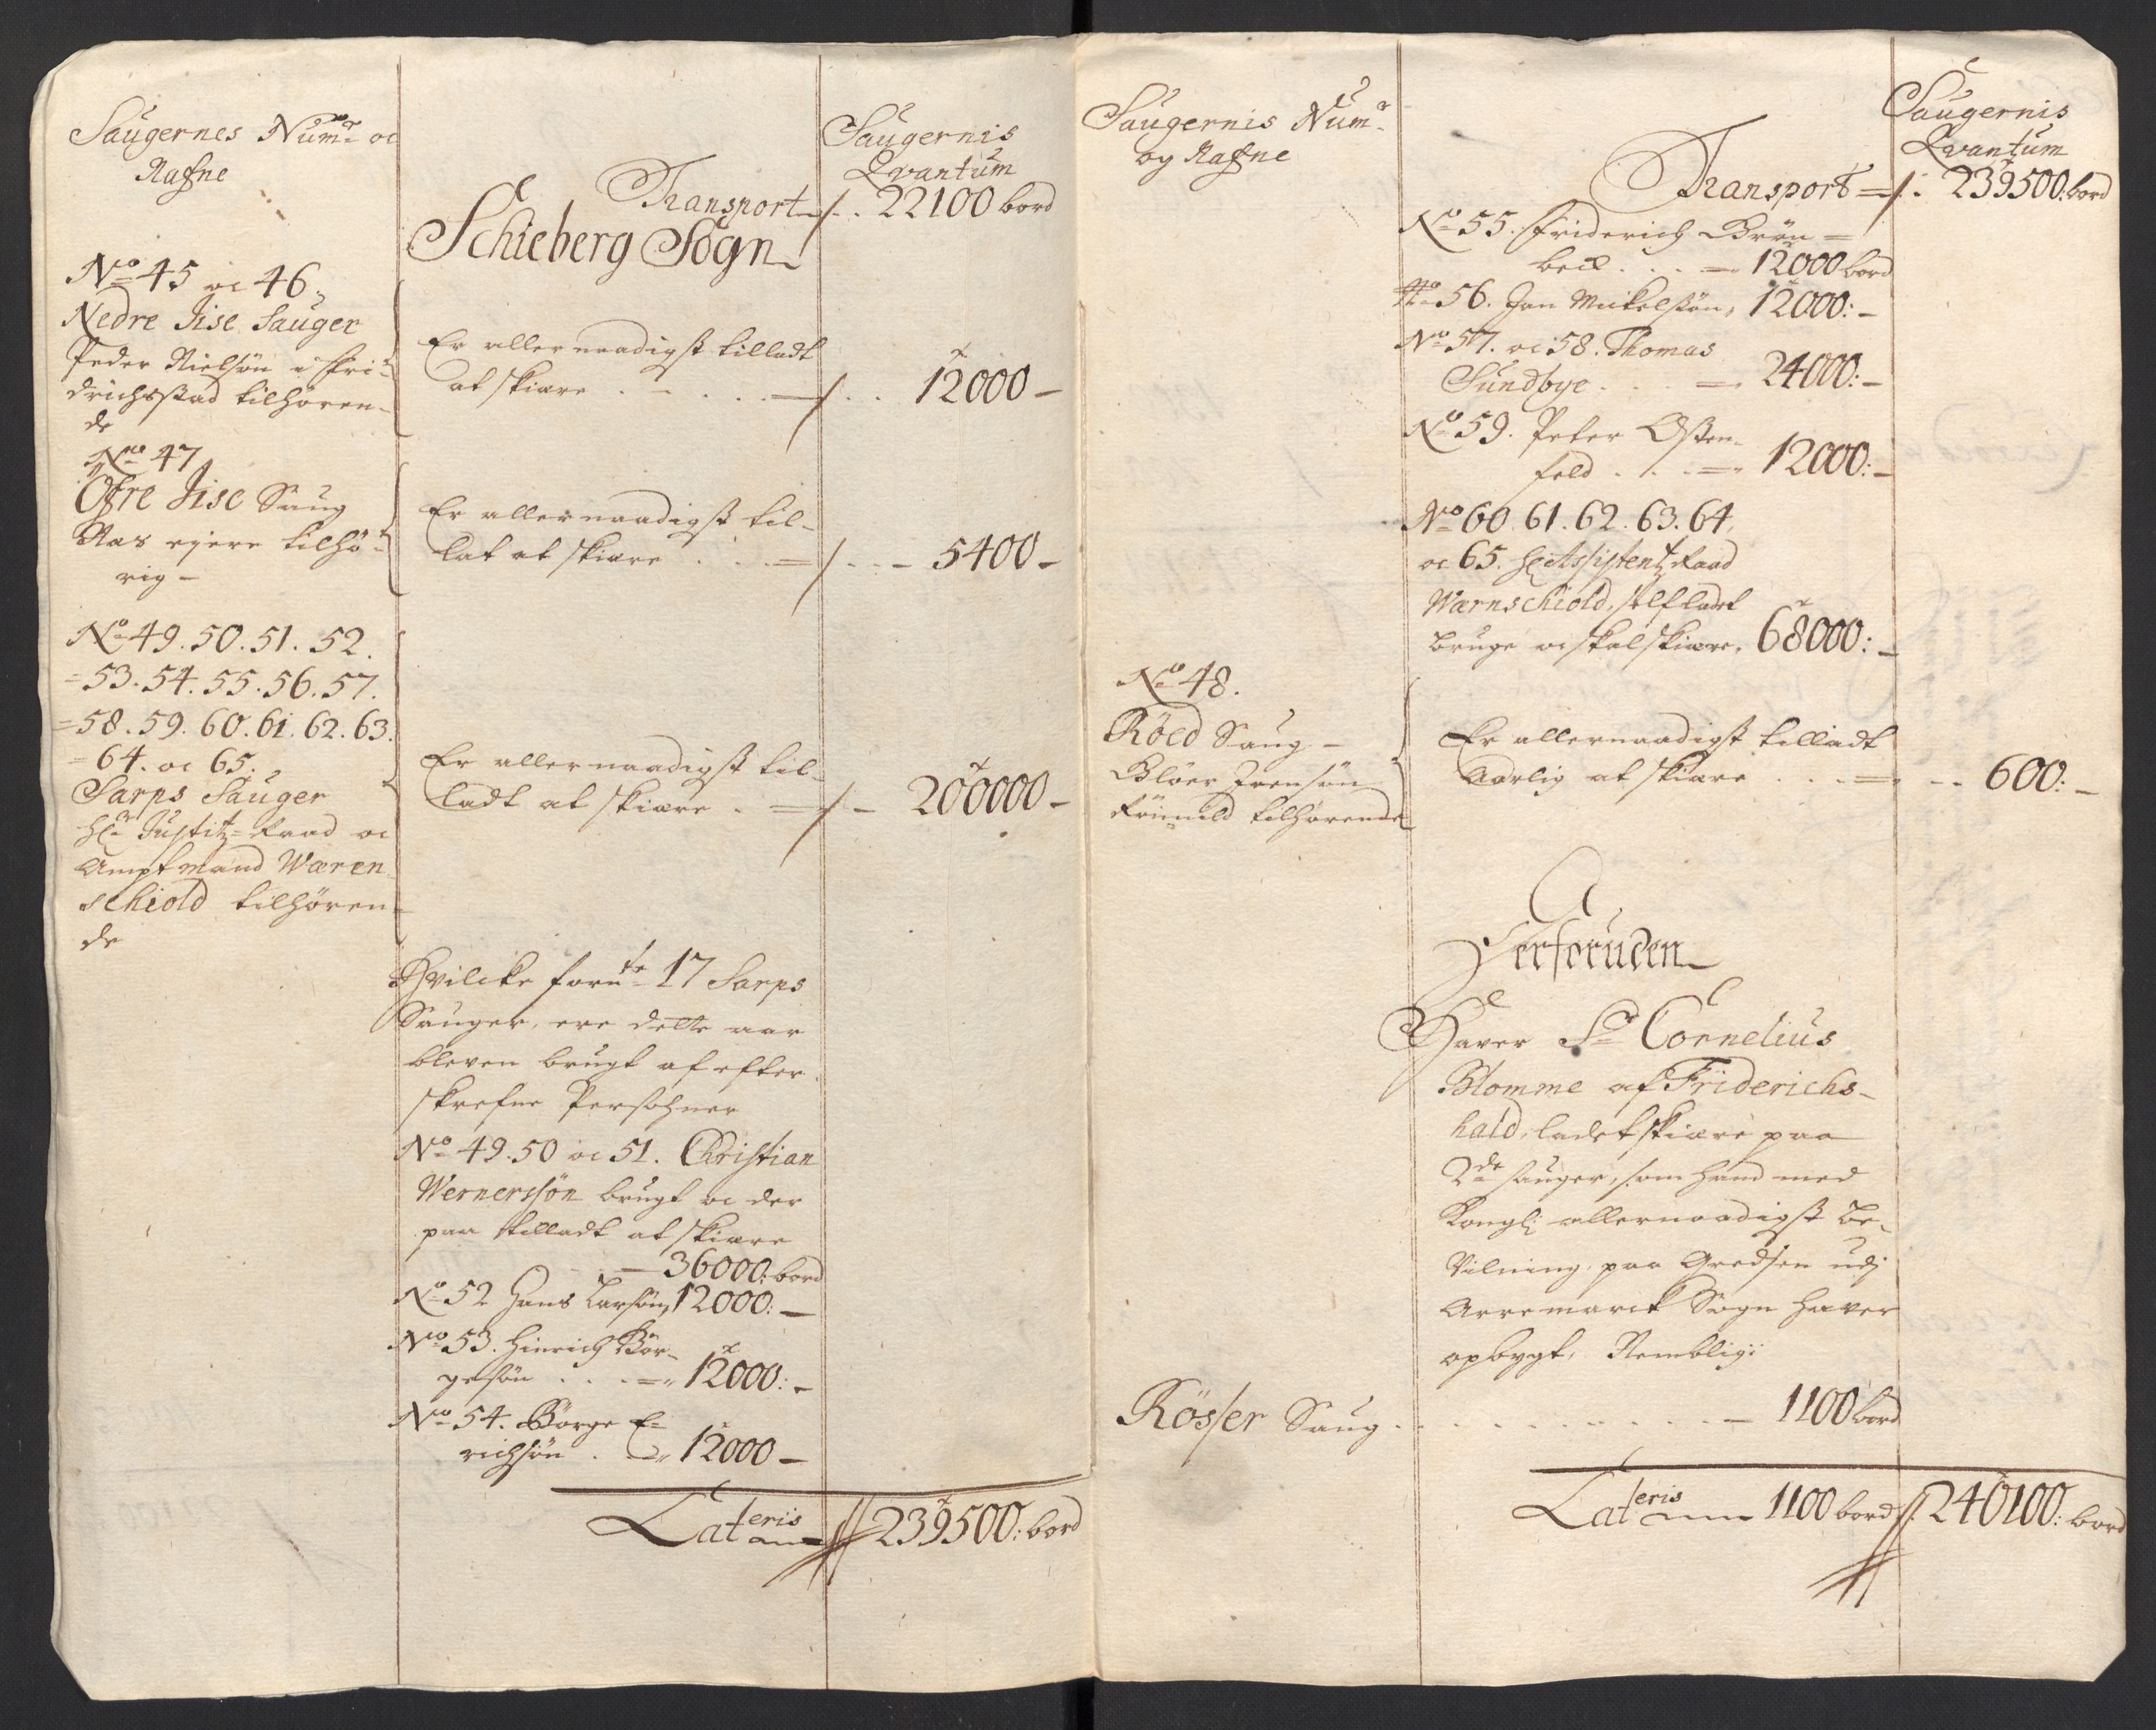 Saugernes Numr oc
Nafne
Saugernis
Qvantum
Transport 22100 bord
Schieberg Sogn
No 45 oc 46
Nedre Iise Sauger
Peder Nielsøn i Fri-
drichsstad tilhøren-
de
Er allernaadigst tilladt
at skiære . . . . 12000 –
No 47
Øfre Iise Saug
Ras eyere tilhø-
rig –
Er allernaadigst til-
lat at skiære . . . 5400 –
No 49. 50. 51. 52.
53. 54. 55. 56. 57.
58. 59. 60. 61. 62. 63.
64. oc 65.
Sarps Sauger
Hr Justitz-Raad oc
Amptmand Wæren
schiold tilhøren-
de
Er allernaadigst til-
ladt at skiære . 200000 –
Hvilcke fornte 17 Sarps
Sauger, ere dette aar
bleven brugt af efter
skrefne Persohner
No 49. 50 oc 51. Christian
Wernerssøn brugt oc der
paa tilladt at skiære
36000: bord
No 52 Hans Larsøn, 12000: –
No 53. Hinrich Bør-
gesøn . . . 12000: –
No 54. Børge E-
richsøn . 12000 –
Lateris 239500: bord
Saugernis Numr
og Nafne
Saugernis
Qvantum
Transport 239500: bord
No 55. Friderich Brøn-
beck . . . 12000 bord
No 56. Jan Mickelsøn, 12000: –
No 57. oc 58. Thomas
Sundbye . . . 24000: –
No 59. Peter Osten-
feld . . . 12000: –
No 60. 61. 62. 63. 64.
oc 65. Hr Assistentz Raad
Wærnschiold, self ladet
bruge oc skal skiære, 68000: –
No 48.
Røed Saug –
Bløer Ivensøn
tilhørende
Er allernaadigst tilladt
Aarlig at skiære . . . 600: –
Derforuden
Haver Sr Cornelius
Blomme af Friderichs-
hald, ladet skiære paa
2de sauger, som hand med
Kongl: allernaadigst be-
vilning, paa Gredsen udj
Arremarck Sogn haver
opbygt, Nemblig:
Rösser Saug . . . . 1100 bord
Lateris 1100 bord 240100: bord